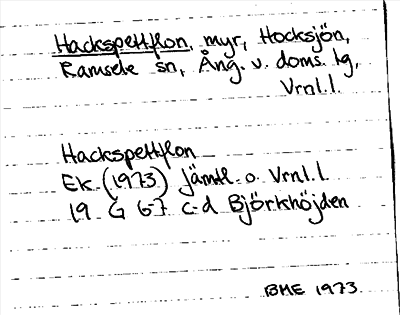 Hackspettflon, myr, Hocksjön,
Ramsele sn, Ång. v. doms. tg,
Vrnl. l.
Hackspettflon
Ek. (1973) Jämtl. o. Vrnl. l.
19 G 6-7 c-d Björkhöjden
BME 1973